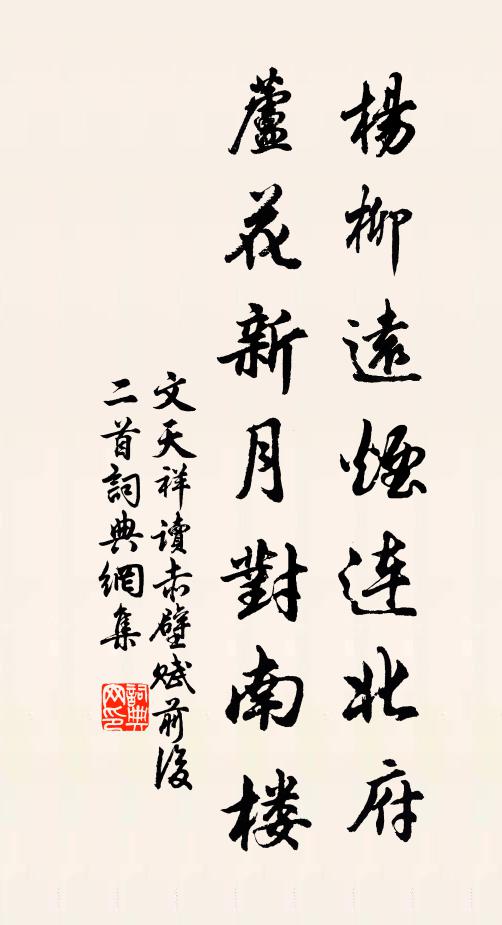 楊柳遠煙連北府
蘆花新月對南楼
文天祥讀赤壁賦前後
二首詞典網集
詞典网印